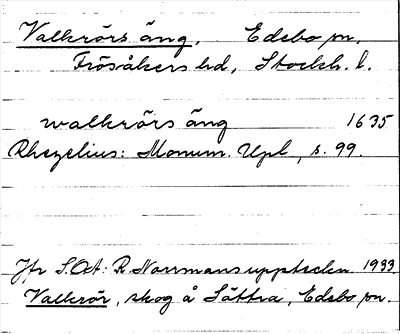 Valkrörs äng, Edebo sn,
Frösåkers hd, Stockh. l.
walkrörs äng 1635
Rhezelius: Monum. Upl, s. 99.
Jfr S.OA: R. Norrmans uppteckn 1933
Valkrör, skog å Sättra, Edebo sn.